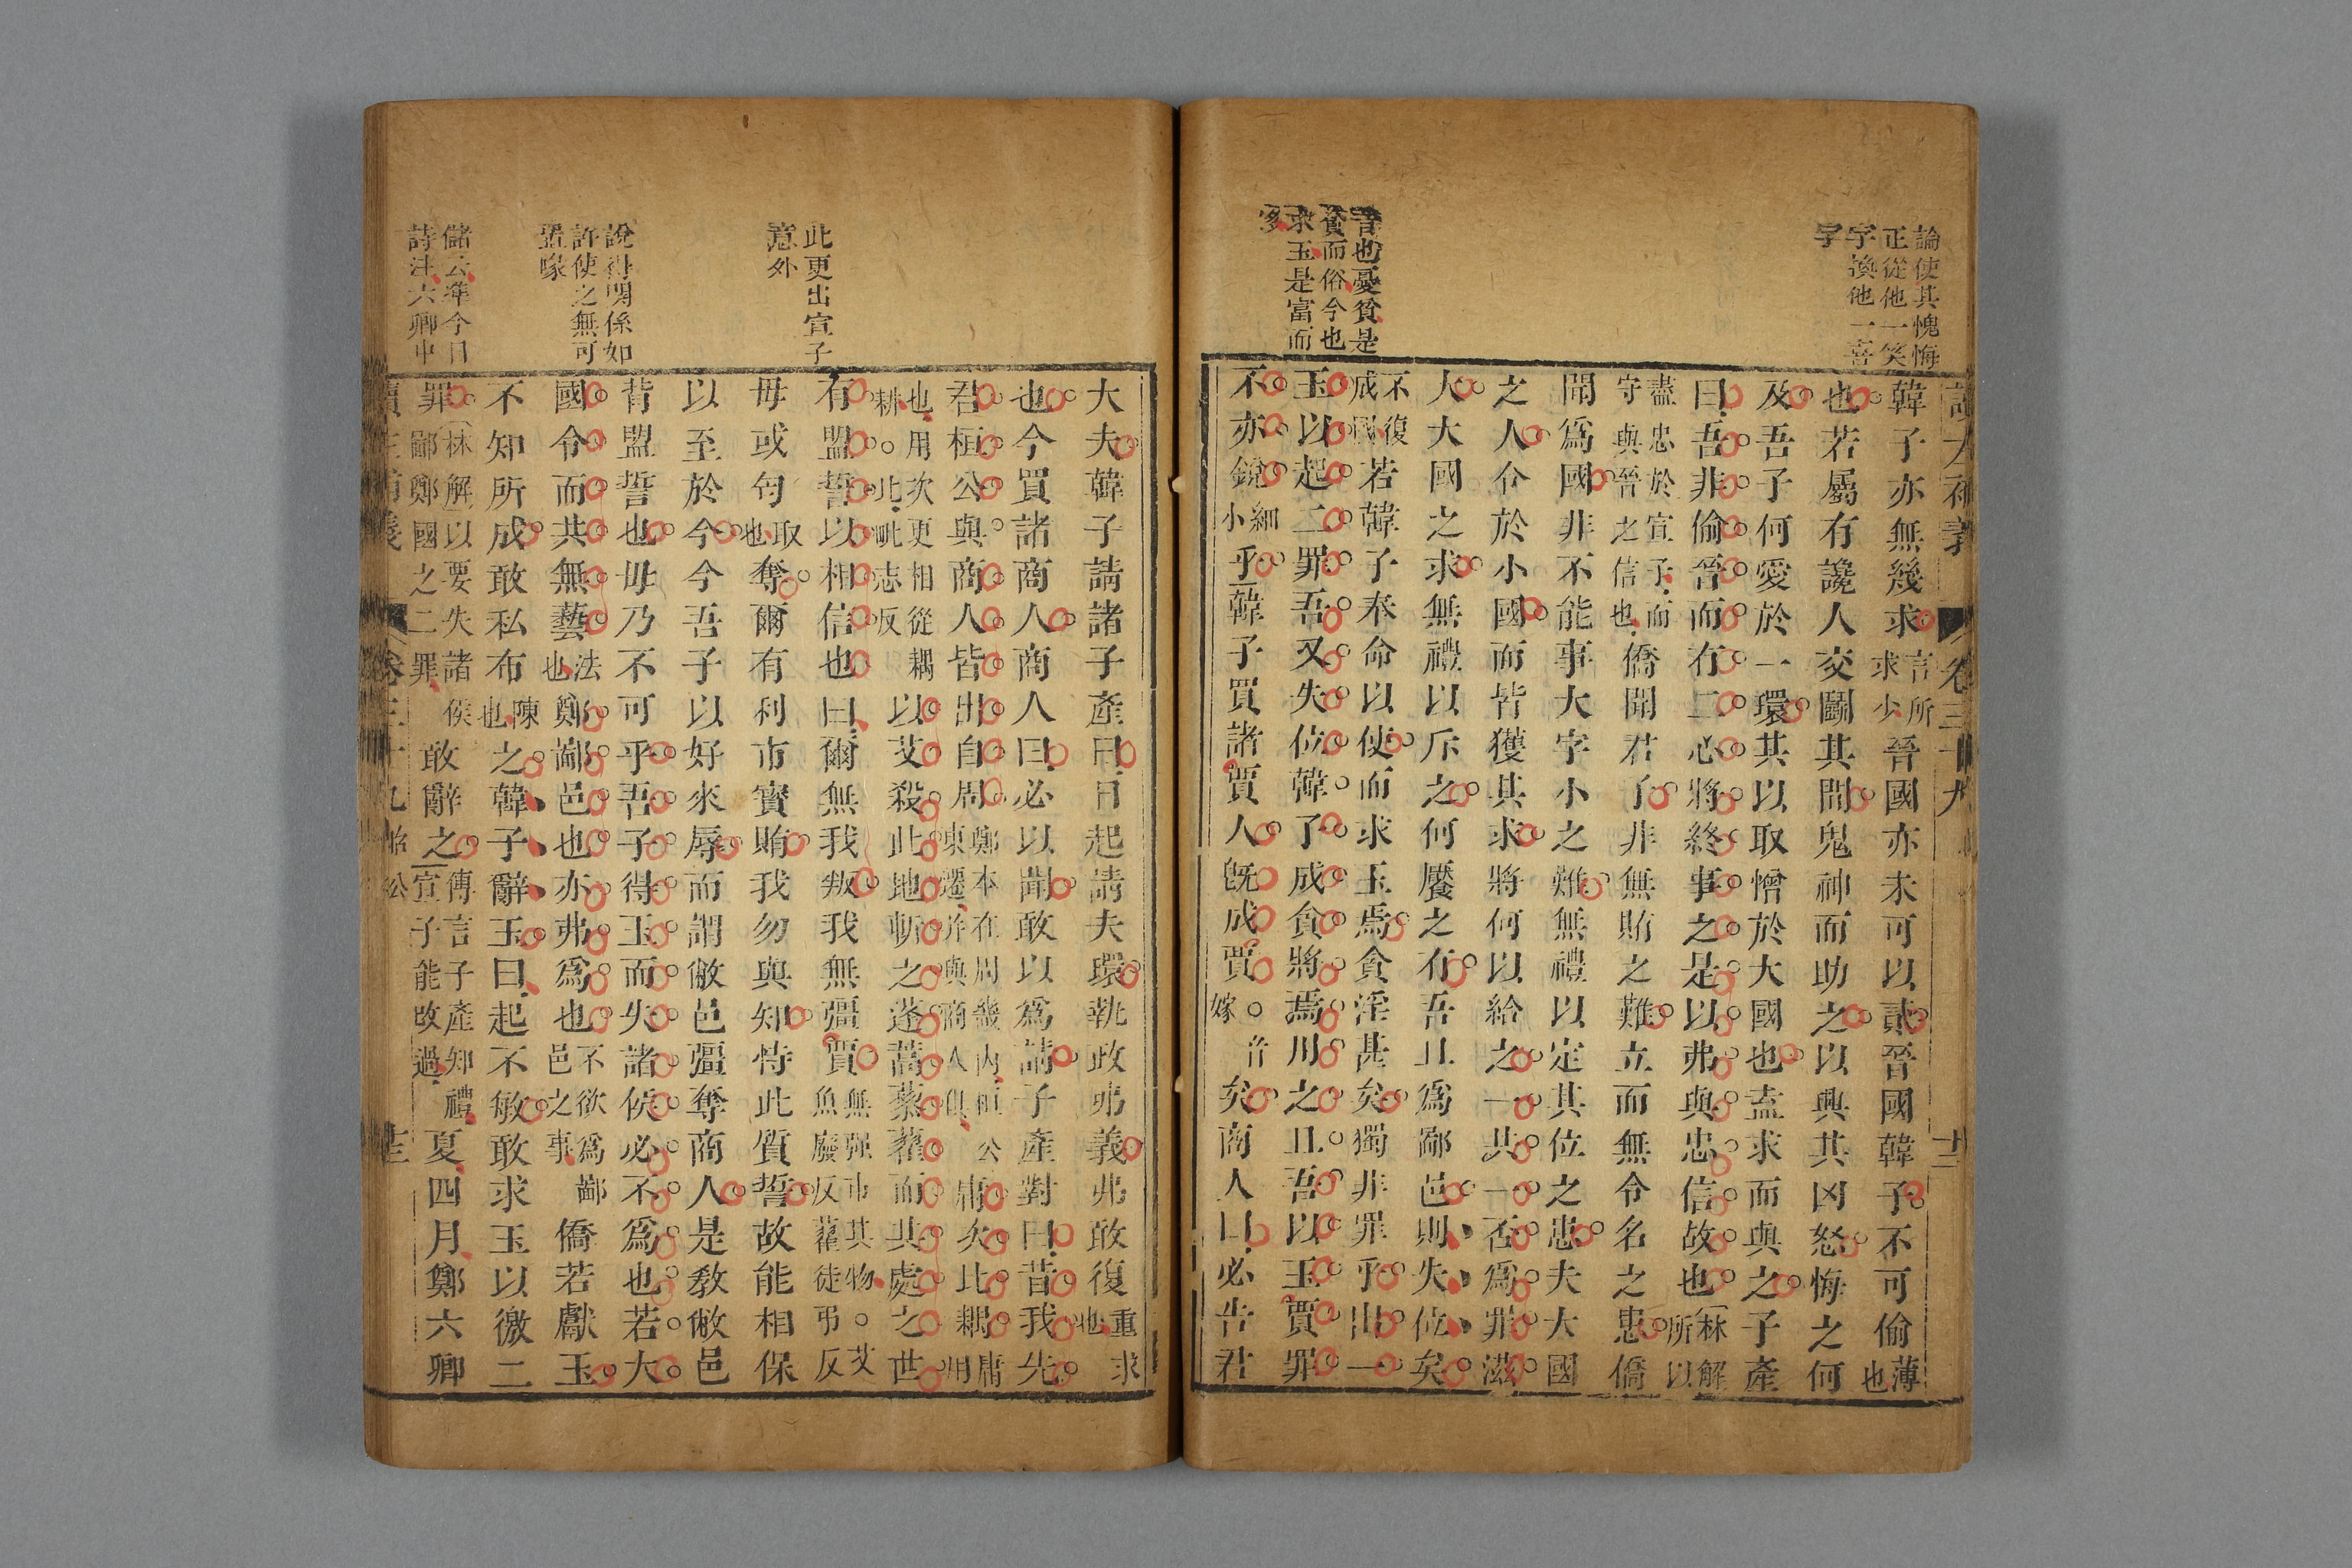 論使其愧悔
正從他一笑
字換他一喜
字
昔也憂貧是
貧而俗今也
求玉是富而
多
韓子亦無幾求言所求少晉國亦未可以貳晉國韓子不可偷薄也
也若屬有讒人交鬬其間鬼神而助之以興其凶怒悔之何
及吾子何愛於一環其以取憎於大國也盍求而與之子產
曰吾非偷晉而有二心將終事之是以弗與忠信故也林解所以
盡忠於宣子而守與晉之信也僑聞君子非無賄之難立而無令名之患僑
聞爲國非不能事大字小之難無禮以定其位之患夫大國
之人令於小國而皆獲其求將何以給之一共一否爲罪滋
大大國之求無禮以斥之何饜之有吾且爲鄙邑則失位矣
不復成國若韓子奉命以使而求玉焉貪淫甚矣獨非罪乎出一
玉以起二罪吾又失位韓子成貪將焉用之且吾以玉賈罪
不亦銳細小乎韓子買諸賈人旣成賈音嫁矣商人曰必告君
此更出宣子
意外
說得明係如
許使之無可
置喙
儲云準今日
詩注六卿中
大夫韓子請諸子產曰日起請夫環執政弗義弗敢復重求也
也今買諸商人商人曰必以聞敢以爲請子產對曰昔我先
君桓公與商人皆出自周鄭本在周畿內桓公東遷并與商人俱庸次比耦庸用
也用次更相從耦耕比毗志反以艾殺此地斬之蓬蒿藜藋而共處之世
有盟誓以相信也曰爾無我叛我無彊賈無强市其物艾魚廢反藋徒弔反
毋或匄取也奪爾有利市寶賄我勿與知恃此質誓故能相保
以至於今今吾子以好來辱而謂敝邑彊奪商人是教敝邑
背盟誓也毋乃不可乎吾子得玉而失諸侯必不爲也若大
國令而共無藝法也鄭鄙邑也亦弗爲也不欲爲鄙邑之事僑若獻玉
不知所成敢私布陳也之韓子辭玉曰起不敏敢求玉以徼二
罪林解以要失諸侯鄙鄭國之二罪敢辭之傳言子產知禮宣子能改過夏四月鄭六卿